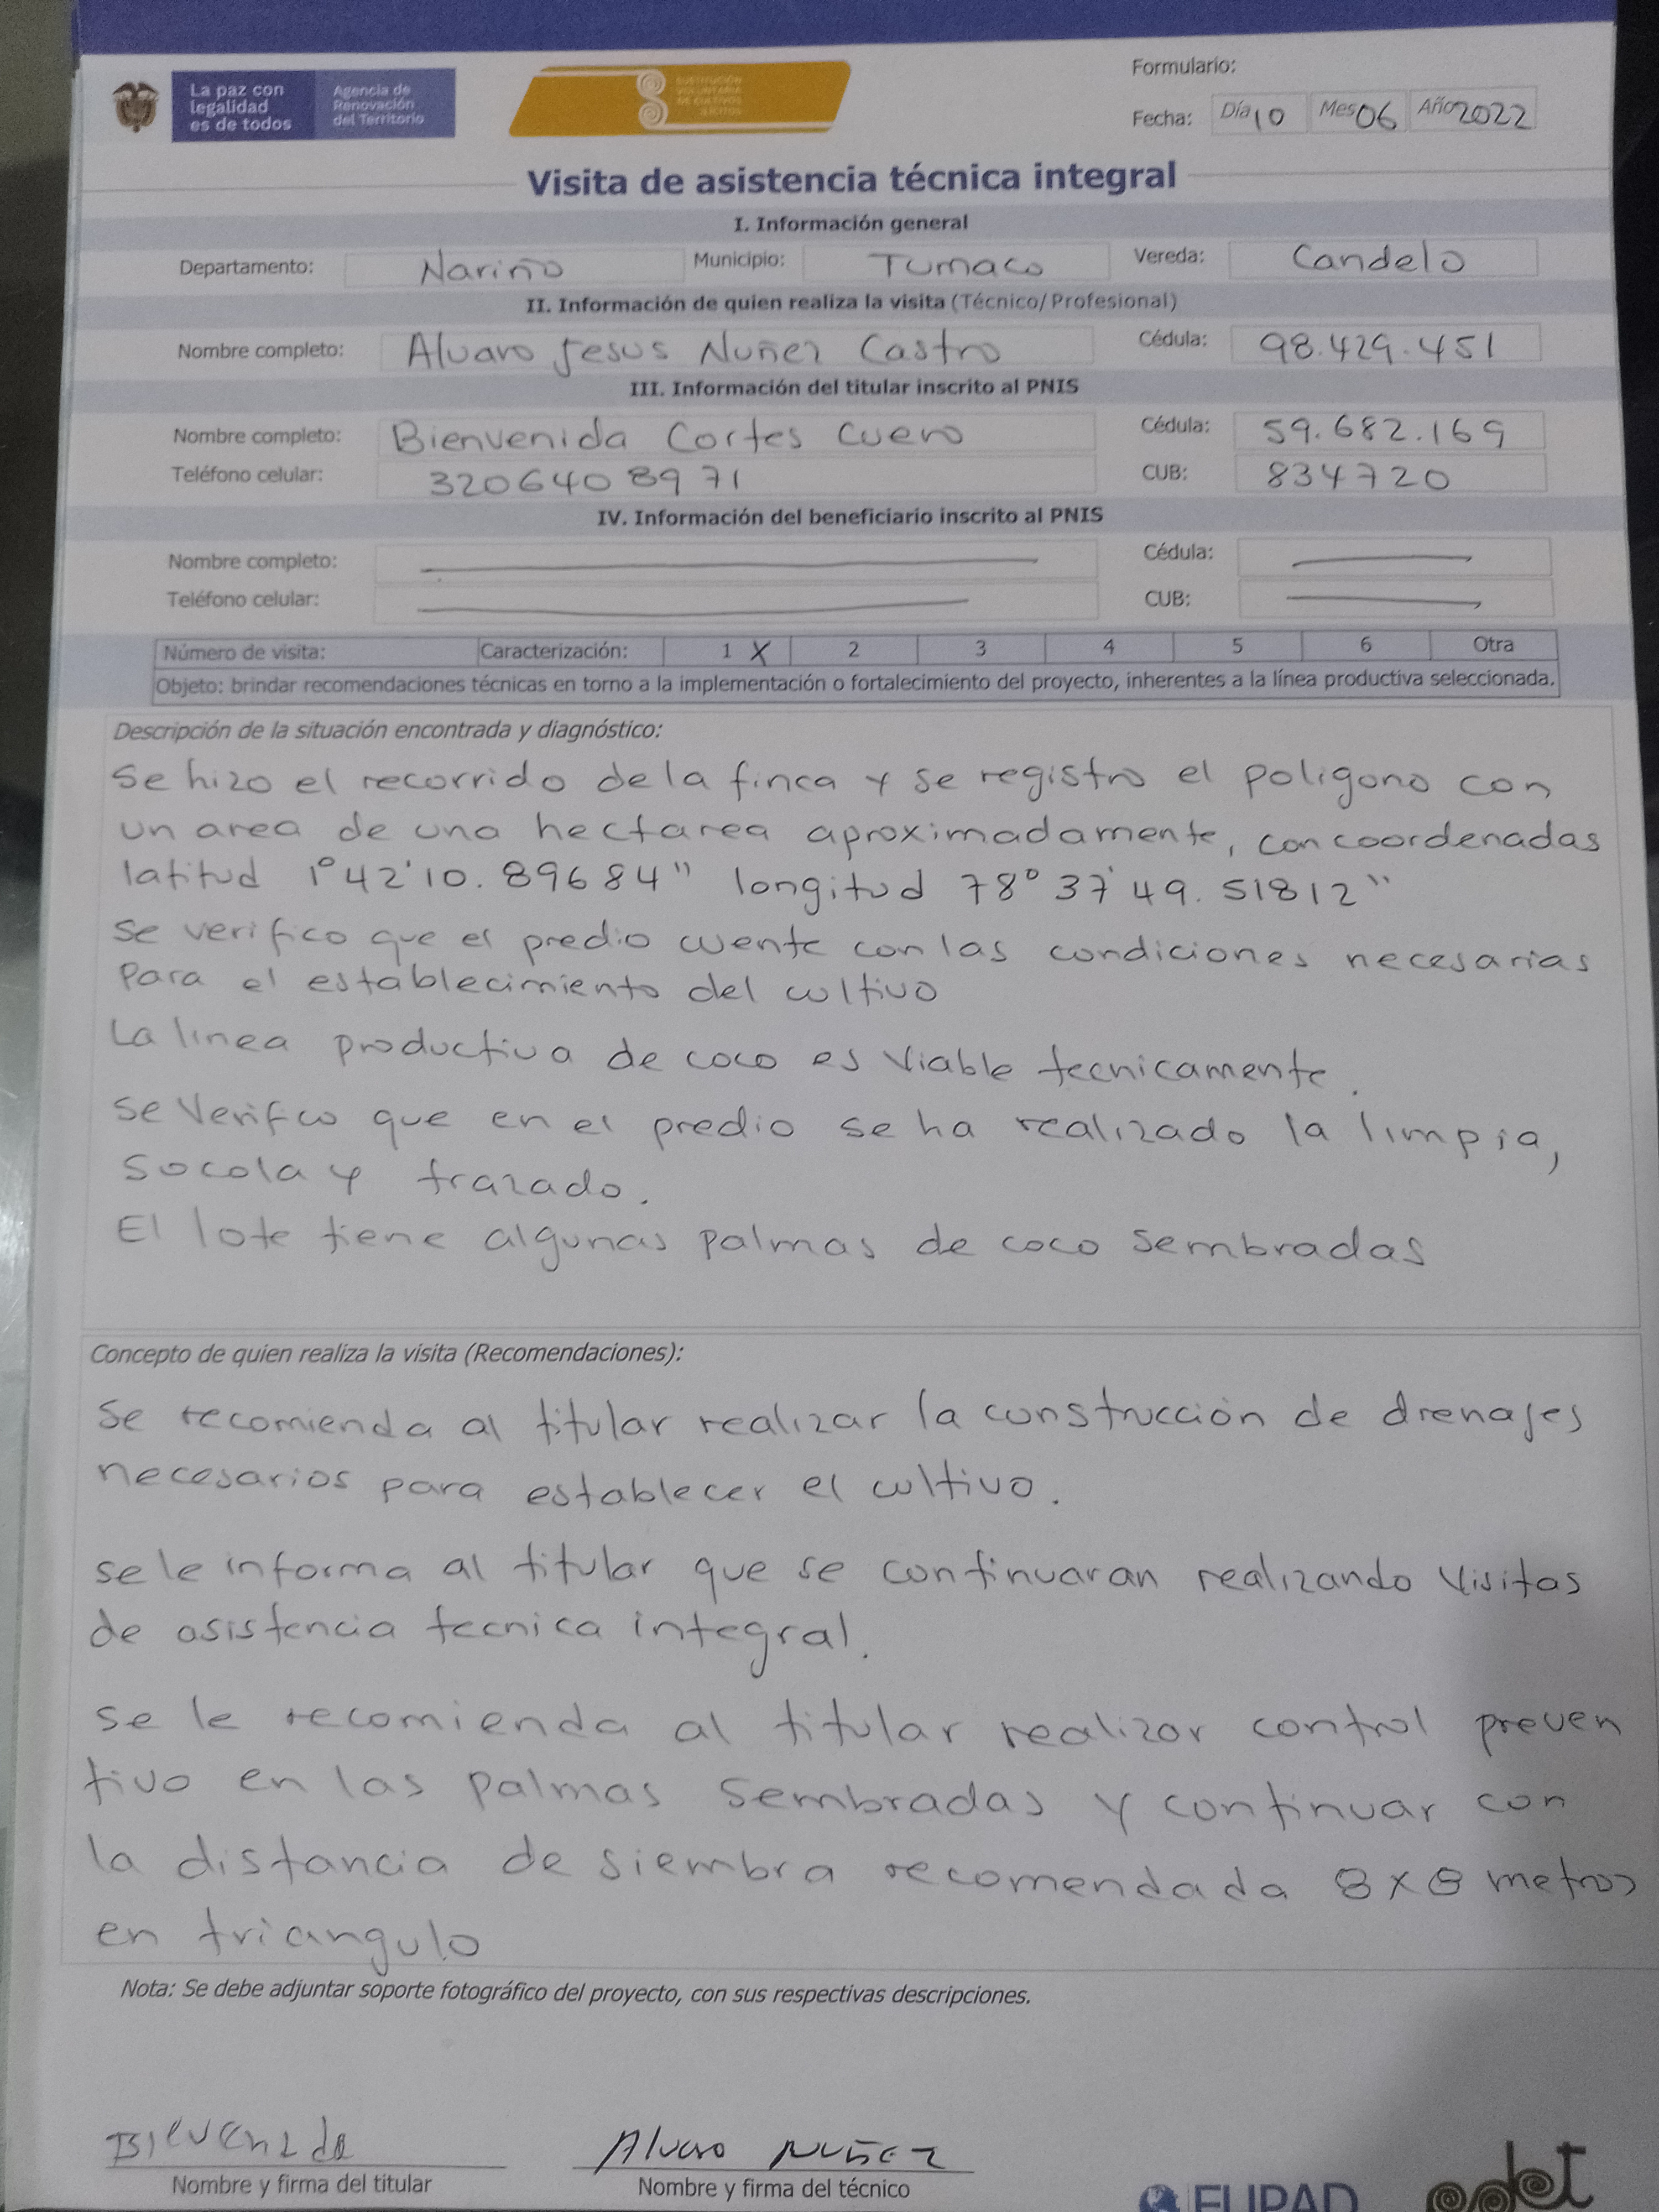 La paz con
legalidad
es de todos
Agencia de
Renovación
del Territorio
SUSTITUCIÓN
VOLUNTARIA
DE CULTIVOS
ILÍCITOS
Formulario:
Fecha: Día 10 Mes 06 Año 2022
Visita de asistencia técnica integral
I. Información general
Departamento: Nariño Municipio: Tumaco Vereda: Candelo
II. Información de quien realiza la visita (Técnico/Profesional)
Nombre completo: Alvaro Jesus Nuñez Castro Cédula: 98.429.451
III. Información del titular inscrito al PNIS
Nombre completo: Bienvenida Cortes Cuero Cédula: 59.682.169
Teléfono celular: 3206408971 CUB: 834720
IV. Información del beneficiario inscrito al PNIS
Nombre completo: Cédula:
Teléfono celular: CUB:
Número de visita: Caracterización: 1 X 2 3 4 5 6 Otra
Objeto: brindar recomendaciones técnicas en torno a la implementación o fortalecimiento del proyecto, inherentes a la línea productiva seleccionada.
Descripción de la situación encontrada y diagnóstico:
Se hizo el recorrido de la finca y se registro el poligono con
un area de una hectarea aproximadamente, con coordenadas
latitud 1°42'10.89684" longitud 78°37'49.51812"
Se verifico que el predio cuente con las condiciones necesarias
Para el establecimiento del cultivo
La linea productiva de coco es viable tecnicamente.
Se verifico que en el predio se ha realizado la limpia,
Socola y trazado.
El lote tiene algunas palmas de coco sembradas
Concepto de quien realiza la visita (Recomendaciones):
Se recomienda al titular realizar la construcción de drenajes
necesarios para establecer el cultivo.
se le informa al titular que se continuaran realizando visitas
de asistencia tecnica integral.
se le recomienda al titular realizar control preven
tivo en las palmas sembradas y continuar con
la distancia de siembra recomendada 8x8 metros
en triangulo
Nota: Se debe adjuntar soporte fotográfico del proyecto, con sus respectivas descripciones.
Bievenida Alvaro NUÑEZ
Nombre y firma del titular Nombre y firma del técnico